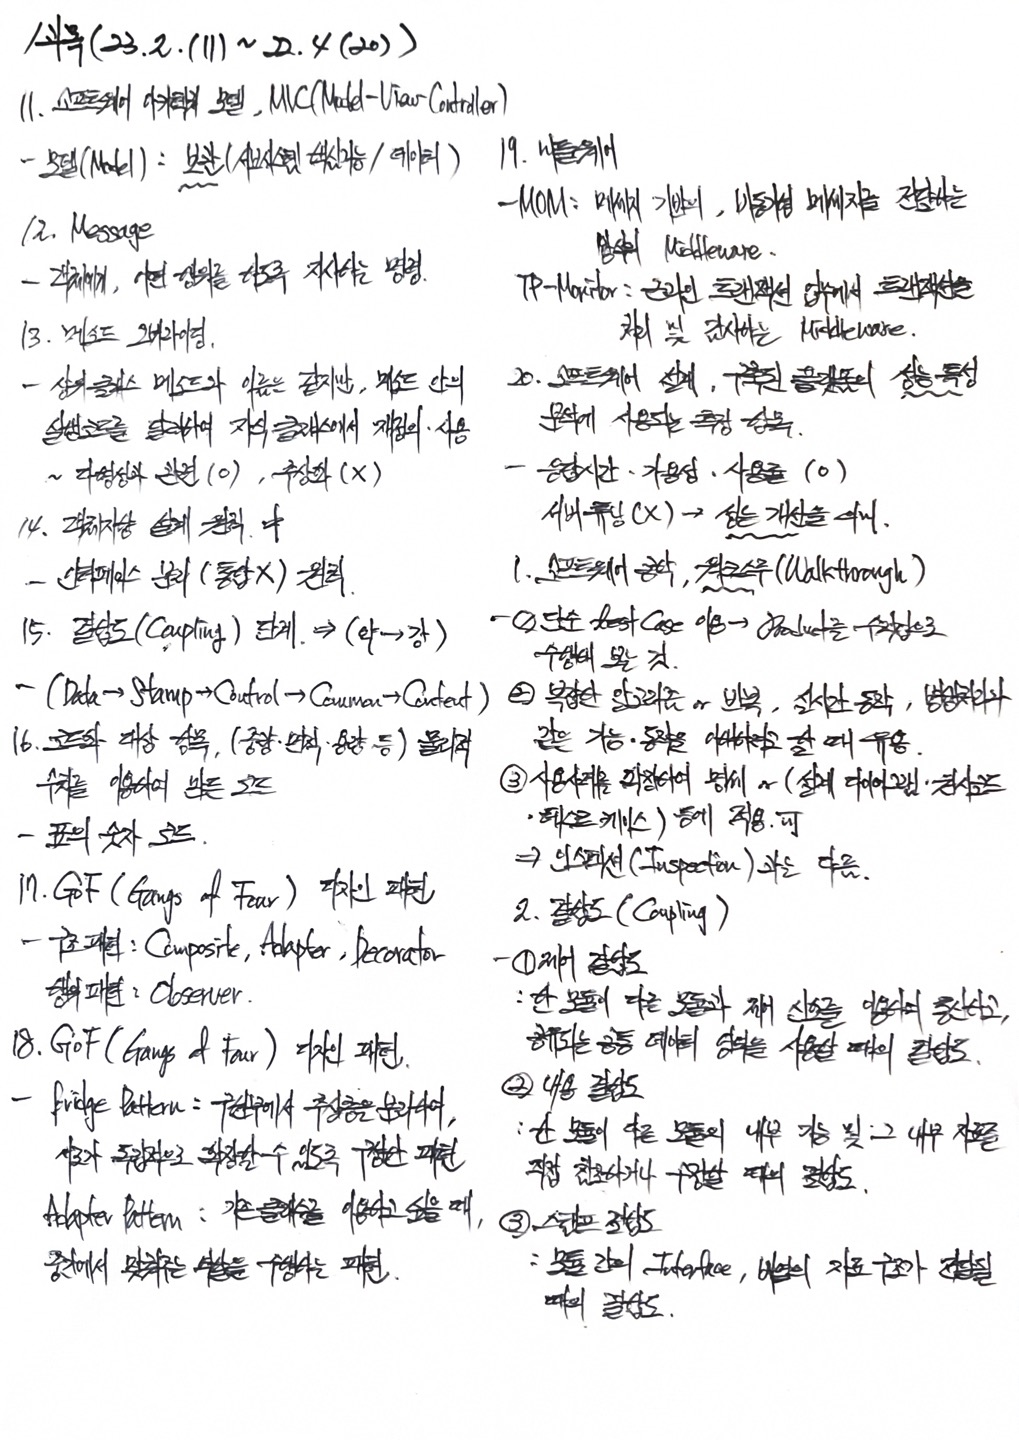 1과목(23.2.(11) ~ 22.4(20))
11. 소프트웨어 아키텍처 모델, MVC(Model-View-Controller)
- 모델(Model) : 보관(서브시스템 핵심기능/데이터)
12. Message
- 객체에게, 어떤 행위를 하도록 지시하는 명령.
13. 메소드 오버라이딩.
- 상위클래스 메소드와 이름은 같지만, 메소드 안의
실행코드를 달리하여 자식클래스에서 재정의·사용
~ 다형성과 관련(O), 추상화(X)
14. 객체지향 설계 원칙 中
- 인터페이스 분리(통합X) 원칙.
15. 결합도(Coupling) 단계. ⇒ (약→강)
- (Data→Stamp→Control→Common→Content)
16. 코드화 대상 항목, (중량·면적·용량 등) 물리적
수치를 이용하여 만든 코드
- 표의 숫자 코드.
17. GoF(Gangs of Four) 디자인 패턴
- 구조패턴 : Composite, Adapter, Decorator
행위패턴 : Observer.
18. GoF(Gangs of Four) 디자인 패턴.
- Bridge Pattern : 구현부에서 추상층을 분리하여,
서로가 독립적으로 확장할 수 있도록 구성한 패턴
Adapter Pattern : 기존클래스를 이용하고 싶을 때,
중간에서 맞춰주는 역할을 수행하는 패턴.
19. 미들웨어
- MOM : 메세지 기반의, 비동기형 메세지를 전달하는
방식의 Middleware.
TP-Monitor : 온라인 트랜잭션 업무에서 트랜잭션을
처리 및 감시하는 Middleware.
20. 소프트웨어 설계, 구축된 플랫폼의 성능특성
분석에 사용되는 측정 항목.
- 응답시간·가용성·사용률 (O)
서버튜닝(X) → 성능 개선을 의미.
1. 소프트웨어 공학, 워크스루(Walkthrough)
- ① 단순 Test Case 이용 → Product를 수작업으로
수행해 보는 것.
② 복잡한 알고리즘 or 반복, 실시간 동작, 병행처리와
같은 기능·동작을 이해하려고 할 때 유용.
③ 사용사례를 확장하여 명세 or (설계 다이어그램·원시코드
·테스트케이스) 등에 적용.可
⇒ 인스펙션(Inspection)과는 다름.
2. 결합도(Coupling)
- ① 제어 결합도
: 한 모듈이 다른 모듈과 제어 신호를 이용하여 통신하고,
공유되는 공통 데이터 영역을 사용할 때의 결합도.
② 내용 결합도
: 한 모듈이 다른 모듈의 내부 기능 및 그 내부 자료를
직접 참조하거나 수정할 때의 결합도.
③ 스탬프 결합도
: 모듈 간의 Interface, 배열의 자료구조가 전달될
때의 결합도.